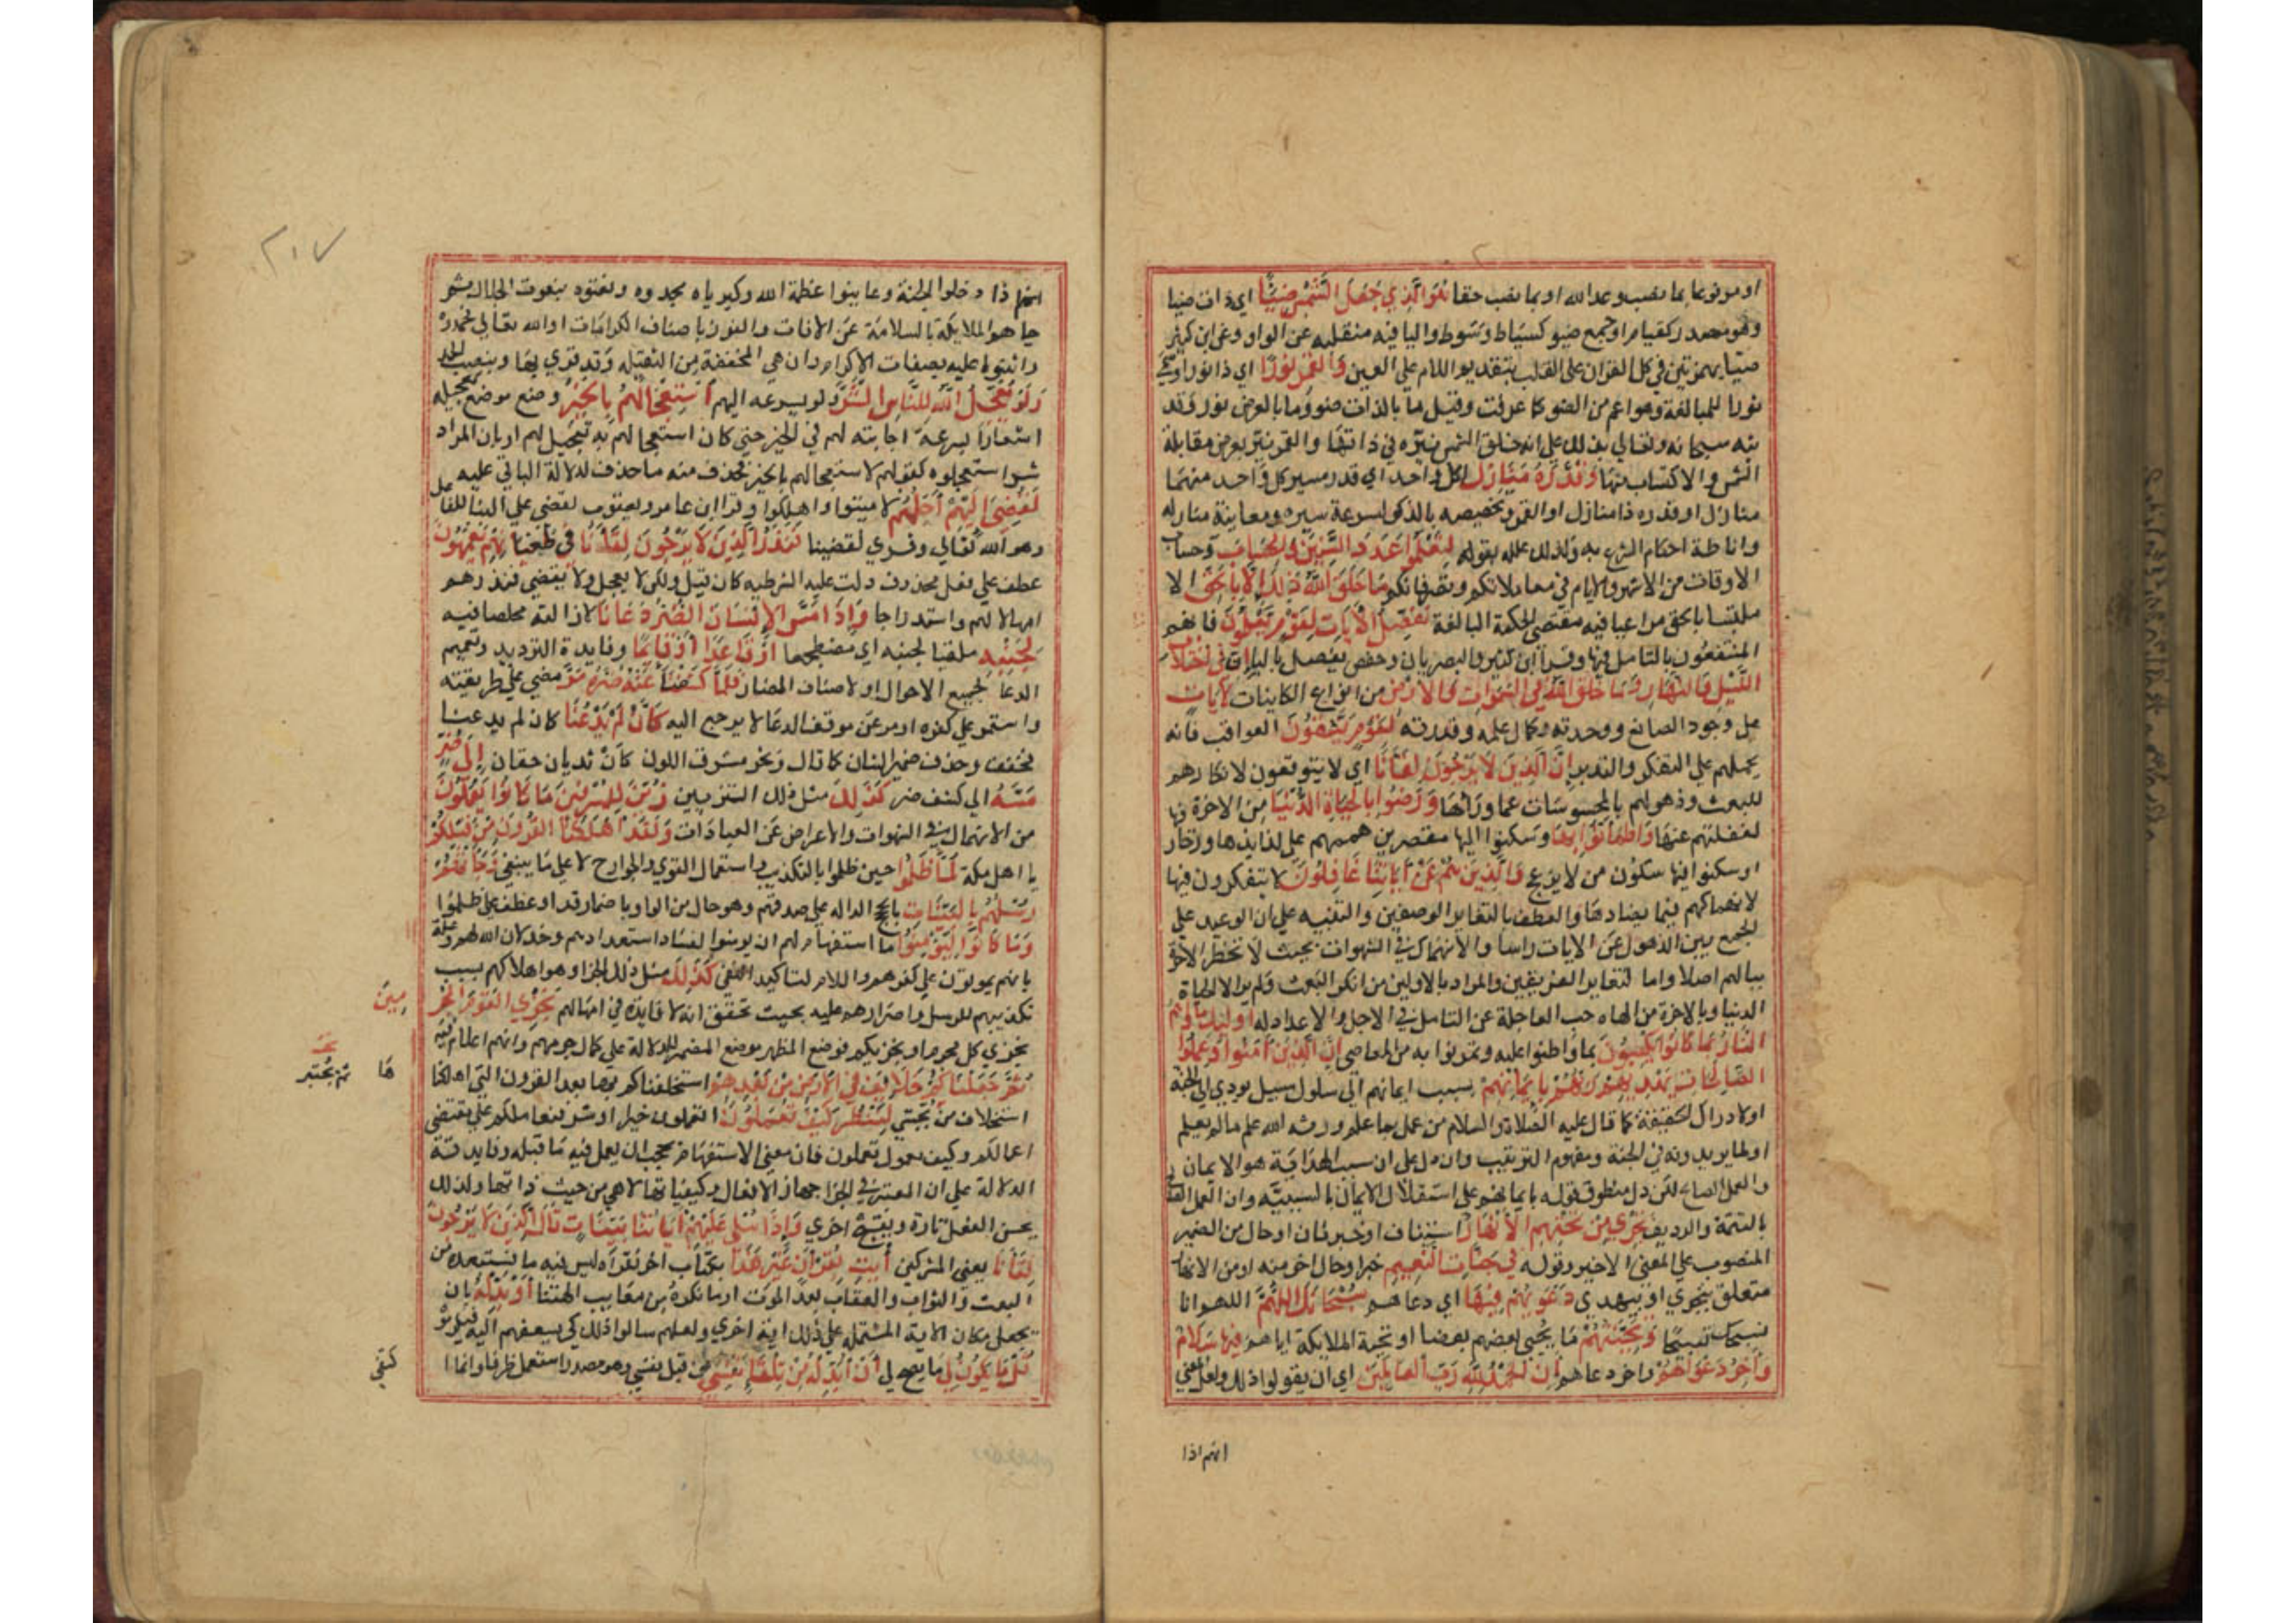 او مرفوعا بما نصب وعد الله او بما نصب حقا هُوَ الَّذِي جَعَلَ الشَّمْسَ ضِيَآءً اي ذات ضيا
وهو مصدر كقيام او جمع ضيو كسياط وسوط واليا فيه منقلبه عن الواو وعن ابن كثير
ضيئا بهمزتين في كل القران على القلب بتقديم اللام على العين وَالْقَمَرَ نُورًا اي ذا نور او سمي
نورا للمبالغة وهو اعم من الضو كما عرفت وقيل ما بالذات ضوو ما بالعرض نور وقد
نبه سبحانه وتعالي بذلك على انه خلق الشمس نيره في ذاتها والقمر نيرا بعرض مقابلة
الشمس والاكتساب منها وَقَدَّرَهُ مَنَازِلَ لكل واحد اي قدر مسير كل واحد منهما
منازل او قدره ذا منازل او القمر وتخصيصه بالذكر لسرعة سيره ومعاينة منازله
واناطة احكام الشرع به ولذلك علله بقوله لِتَعْلَمُوا عَدَدَ السِّنِينَ وَالْحِسَابَ وحساب
الاوقات من الاشهر والايام في معاملاتكم وتصرفاتكم مَا خَلَقَ اللَّهُ ذَلِكَ إِلَّا بِالْحَقِّ الا
ملتبسا بالحق مراعيا فيه مقتضى الحكمة البالغة نُفَصِّلُ الْآيَاتِ لِقَوْمٍ يَعْلَمُونَ فانهم
المنتفعون بالتامل فيها وقرا ابن كثير والبصريان وحفص يفصل باليا إِنَّ فِي اخْتِلَافِ
اللَّيْلِ وَالنَّهَارِ وَمَا خَلَقَ اللَّهُ فِي السَّمَوَاتِ وَالْأَرْضِ من انواع الكاينات لَآيَاتٍ
على وجود الصانع ووحدته وكمال علمه وقدرته لِقَوْمٍ يَتَّقُونَ العواقب فانه
يحملهم على التفكر والتدبر إِنَّ الَّذِينَ لَا يَرْجُونَ لِقَآءَنَا اي لا يتوقعون لانكارهم
للبعث وذهولهم بالمحسوسات عما ورائها وَرَضُوا بِالْحَيَاةِ الدُّنْيَا من الاخرة
لغفلتهم عنها وَاطْمَأَنُّوا بِهَا وسكنوا اليها مقتصرين هممهم على لذايذها وزخارفها
او سكنوا فيها سكون من لا يزعج وَالَّذِينَ هُمْ عَنْ آيَاتِنَا غَافِلُونَ لا يتفكرون فيها
لانهماكهم فيما يضادها والعطف بالتغاير الوصفين والتنبيه على ان الوعيد على
الجمع بين الذهول عن الايات راسا والانهماك في الشهوات بحيث لا تخطر الاخرة
ببالهم اصلا واما لتغاير الفريقين والمراد بالاولين من انكر البعث ولم ير الا الحياة
الدنيا وبالاخرة من الهاه حب العاجلة عن التامل في الاجل والاعداد له اولئك مَأْوَاهُمُ
النَّارُ بِمَا كَانُوا يَكْسِبُونَ بما واظبوا عليه وتمرنوا به من المعاصي إِنَّ الَّذِينَ آمَنُوا وَعَمِلُوا
الصَّالِحَاتِ يَهْدِيهِمْ رَبُّهُمْ بِإِيمَانِهِمْ بسبب ايمانهم الى سلوك سبيل يودي الى الجنة
او لادراك الحقيقة كما قال عليه الصلاة والسلام من عمل بما علم ورثه الله علم ما لم يعلم
او لما يريدونه في الجنة ومفهوم الترتيب وان دل على ان سبب الهداية هو الايمان
والعمل الصالح لكن دل منطوق قوله بايمانهم على استقلال الايمان بالسببيه وان العمل الصالح
بالتتمة والرديف تَجْرِي مِنْ تَحْتِهِمُ الْأَنْهَارُ استيناف او خبر ثان او حال من الضمير
المنصوب على المعنى الاخير وقوله فِي جَنَّاتِ النَّعِيمِ خبر او حال اخر منه او من الانهار
متعلق بتجري او بيهدي دَعْوَيهُمْ فِيهَا اي دعاهم سُبْحَانَكَ اللَّهُمَّ اللهم انا
نسبحك تسبيحا وَتَحِيَّتُهُمْ ما يحيي بعضهم بعضا او تحية الملايكة اياهم فِيهَا سَلَامٌ
وَآخِرُ دَعْوَاهُمْ واخر دعاهم أَنِ الْحَمْدُ لِلَّهِ رَبِّ الْعَالَمِينَ اي ان يقولوا ذلك ولعل المعني
انهم اذا
٢١٧
انهم اذا دخلوا الجنة وعاينوا عظمة الله وكبرياه مجدوه ونعتوه بنعوت الجلال ثم
حياهم الملايكة بالسلامة عن الافات والفوز باصناف الكرامات او الله تعالي فحمدوه
واثنوا عليه بصفات الاكرام وان هي المخففة من الثقيله وقد قري بها وبنصب الحمد
وَلَوْ يُعَجِّلُ اللَّهُ لِلنَّاسِ الشَّرَّ ولو يسرعه اليهم اسْتِعْجَالَهُمْ بِالْخَيْرِ وضع موضع تعجيله
اشعارا بسرعة اجابته لهم في الخير حتى كان استعجالهم به تعجيل لهم او بان المراد
شر استعجلوه كقولهم لاستعجالهم بالخير فحذف منه ما حذف لدلالة الباقي عليه
لَقُضِيَ إِلَيْهِمْ أَجَلُهُمْ لاميتوا واهلكوا وقرا ابن عامر ويعقوب لقضى على البنا للفاعل
وهو الله تعالي وقري لقضينا فَنَذَرُ الَّذِينَ لَا يَرْجُونَ لِقَآءَنَا فِي طُغْيَانِهِمْ يَعْمَهُونَ
عطف على فعل محذوف دلت عليه الشرطيه كان قيل ولكن لا يعجل ولا يقضي فنذرهم
امهالا لهم واستدراجا وَإِذَا مَسَّ الْإِنْسَانَ الضُّرُّ دَعَانَا لازالته مخلصا فيه
لِجَنْبِهِ ملقيا لجنبه اي مضطجعا أَوْ قَاعِدًا أَوْ قَآئِمًا وفايدة الترديد وتعميم
الدعا لجميع الاحوال او لاصناف المضار فَلَمَّا كَشَفْنَا عَنْهُ ضُرَّهُ مَرَّ مضي على طريقته
واستمر على كفره او مر عن موقف الدعا لا يرجع اليه كَأَنْ لَمْ يَدْعُنَا كان لم يدعنا
فخفف وحذف ضمير الشان كما قال ونحر مشرق اللون كان ثدياه حقان إِلَى ضُرٍّ
مَسَّهُ الي كشف ضر كَذَلِكَ مثل ذلك التزيين زُيِّنَ لِلْمُسْرِفِينَ مَا كَانُوا يَعْمَلُونَ
من الانهماك في الشهوات والاعراض عن العبادات وَلَقَدْ أَهْلَكْنَا الْقُرُونَ مِنْ قَبْلِكُمْ
يا اهل مكة لَمَّا ظَلَمُوا حين ظلموا بالتكذيب واستعمال القوي والجوارح لا على ما ينبغي وَجَآءَتْهُمْ
رُسُلُهُمْ بِالْبَيِّنَاتِ بالحجج الداله على صدقهم وهو حال من الواو باضمار قد او عطف على ظلموا
وَمَا كَانُوا لِيُؤْمِنُوا ما استقام لهم ان يومنوا لفساد استعدادهم وخذلان الله لهم وعلمه
بانهم يموتون على كفرهم واللام لتاكيد النفي كَذَلِكَ مثل ذلك الجزا وهو اهلاكهم بسبب
تكذيبهم للرسل واصرارهم عليه بحيث تحقق انه لا فايدة في امهالهم نَجْزِي الْقَوْمَ الْمُجْرِ
مِينَ
نجزي كل مجرم او نجزيكم فوضع المظهر موضع المضمر للدلالة على كمال جرمهم وانهم اعلام فيه
ثُمَّ جَعَلْنَاكُمْ خَلَآئِفَ فِي الْأَرْضِ مِنْ بَعْدِهِمْ استخلفناكم فيها بعد القرون التي اهلكنا
ها
استخلاف من يختبر لِنَنْظُرَ كَيْفَ تَعْمَلُونَ اتعملون خيرا او شرا فنعاملكم على مقتضى
اعمالكم وكيف معمول تعملون فان معني الاستفهام يحجب ان يعمل فيه ما قبله وفايدته
الدلالة على ان المعتبر في الجزا جهاز الافعال وكيفياتها لا هي من حيث ذاتها ولذلك
يحسن الفعل تارة ويقبح اخري وَإِذَا تُتْلَى عَلَيْهِمْ آيَاتُنَا بَيِّنَاتٍ قَالَ الَّذِينَ لَا يَرْجُونَ
لِقَآءَنَا يعني المشركين أْئِتِ بِقُرْآنٍ غَيْرِ هَذَا بكتاب اخر نقراه ليس فيه ما نستبعده من
البعث والثواب والعقاب بعد الموت او ما نكره من معايب الهتنا أَوْ بَدِّلْهُ بان
يجعل مكان الاية المشتمله على ذلك اية اخري ولعلهم سالوا ذلك كي يسعفهم اليه فيلزمو
قُلْ مَا يَكُونُ لِي ما يصح لي أَنْ أُبَدِّلَهُ مِنْ تِلْقَآءِ نَفْسِي من قبل نفسي وهو مصدر استعمل ظرفا وانما ا
كتفي